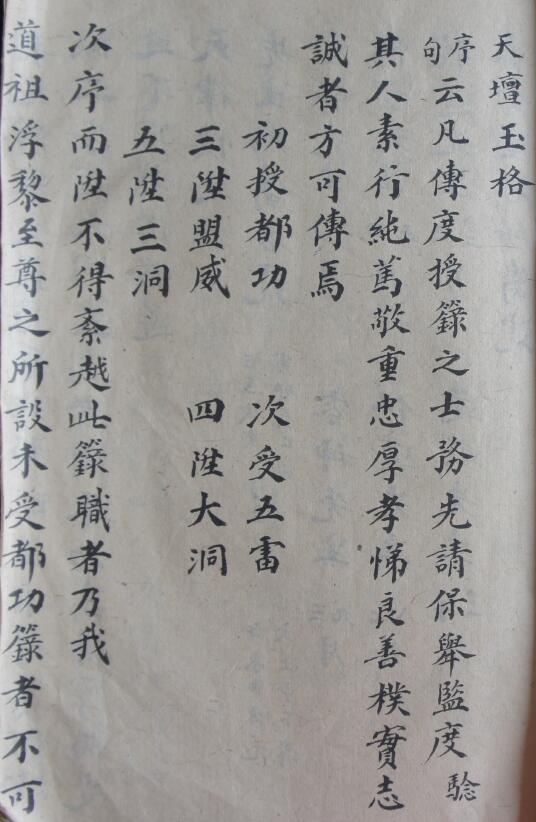 天壇玉格
序句云凡傳度授籙之士務先請保舉監度驗
其人素行純篤敬重忠厚孝悌良善樸實志
誠者方可傳焉
初授都功 次受五雷
三陞盟威 四陞大洞
五陞三洞
次序而陞不得紊越此籙職者乃我
道祖浮黎至尊之所設未受都功籙者不可